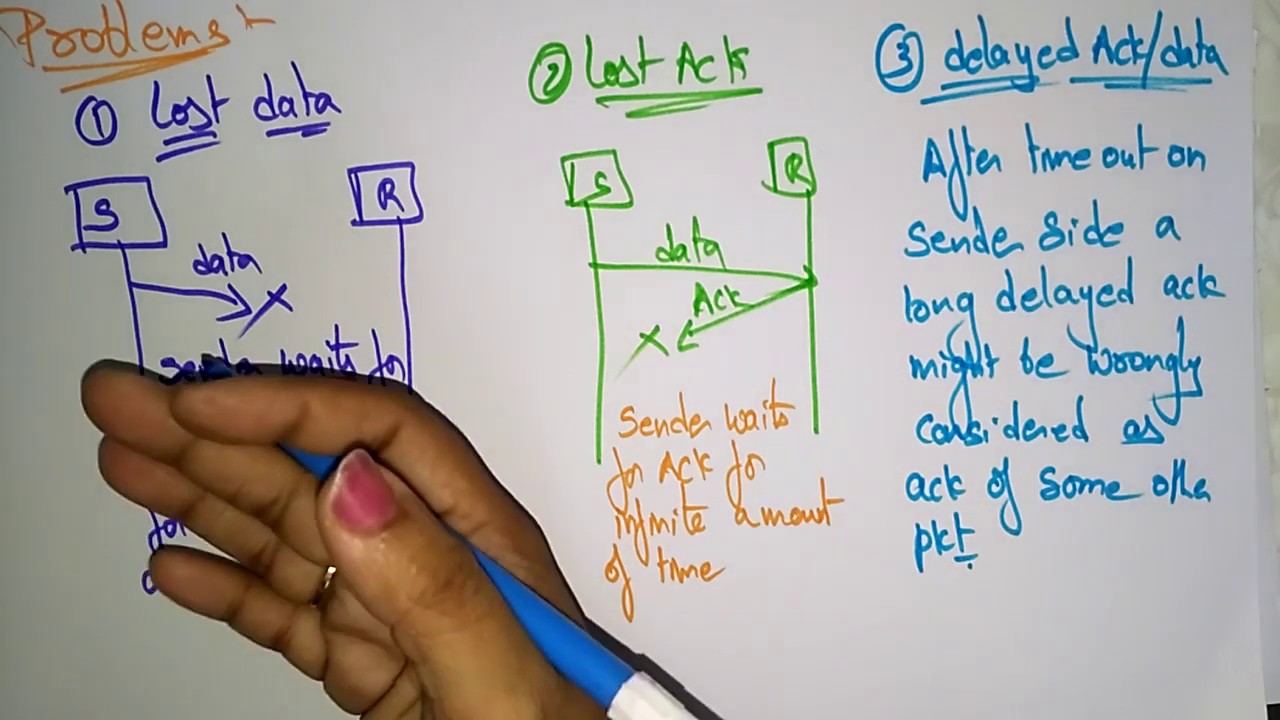 Problems
① Lost data
S
R
data
sender waits for
for
② Lost Ack
S
R
data
Ack
Sender waits
for Ack for
infinite amount
of time
③ delayed Ack/data
After time out on
Sender side a
long delayed ack
might be wrongly
considered as
ack of some other
pkt